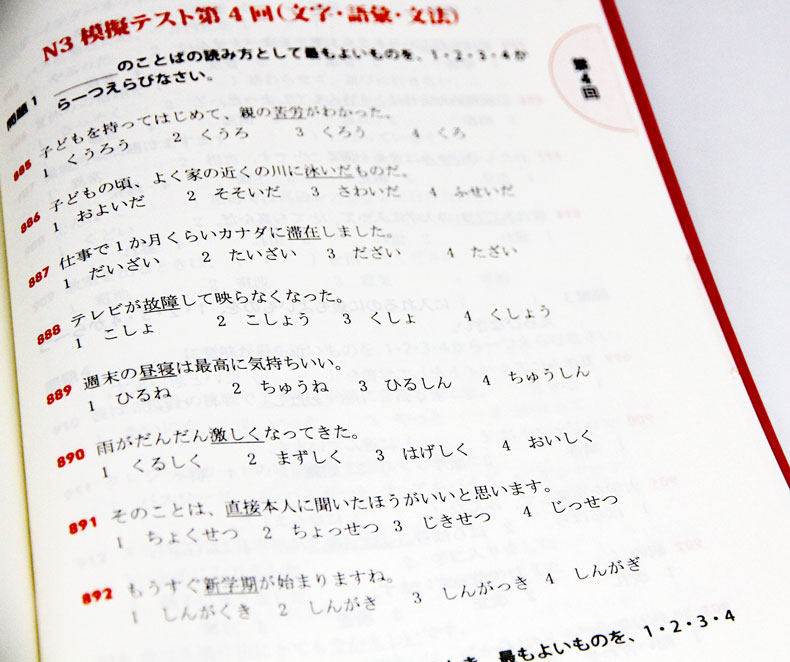 N3 模擬テスト第4回(文字・語彙・文法)
第4回
問題1 ______のことばの読み方として最もよいものを、1・2・3・4か
ら一つえらびなさい。
885 子どもを持ってはじめて、親の苦労がわかった。
1 くうろう 2 くうろ 3 くろう 4 くろ
886 子どもの頃、よく家の近くの川に泳いだものだ。
1 およいだ 2 そそいだ 3 さわいだ 4 ふせいだ
887 仕事で1か月くらいカナダに滞在しました。
1 だいざい 2 たいざい 3 ださい 4 たざい
888 テレビが故障して映らなくなった。
1 こしょ 2 こしょう 3 くしょ 4 くしょう
889 週末の昼寝は最高に気持ちいい。
1 ひるね 2 ちゅうね 3 ひるしん 4 ちゅうしん
890 雨がだんだん激しくなってきた。
1 くるしく 2 まずしく 3 はげしく 4 おいしく
891 そのことは、直接本人に聞いたほうがいいと思います。
1 ちょくせつ 2 ちょっせつ 3 じきせつ 4 じっせつ
892 もうすぐ新学期が始まりますね。
1 しんがくき 2 しんがき 3 しんがっき 4 しんがぎ
最もよいものを、1・2・3・4